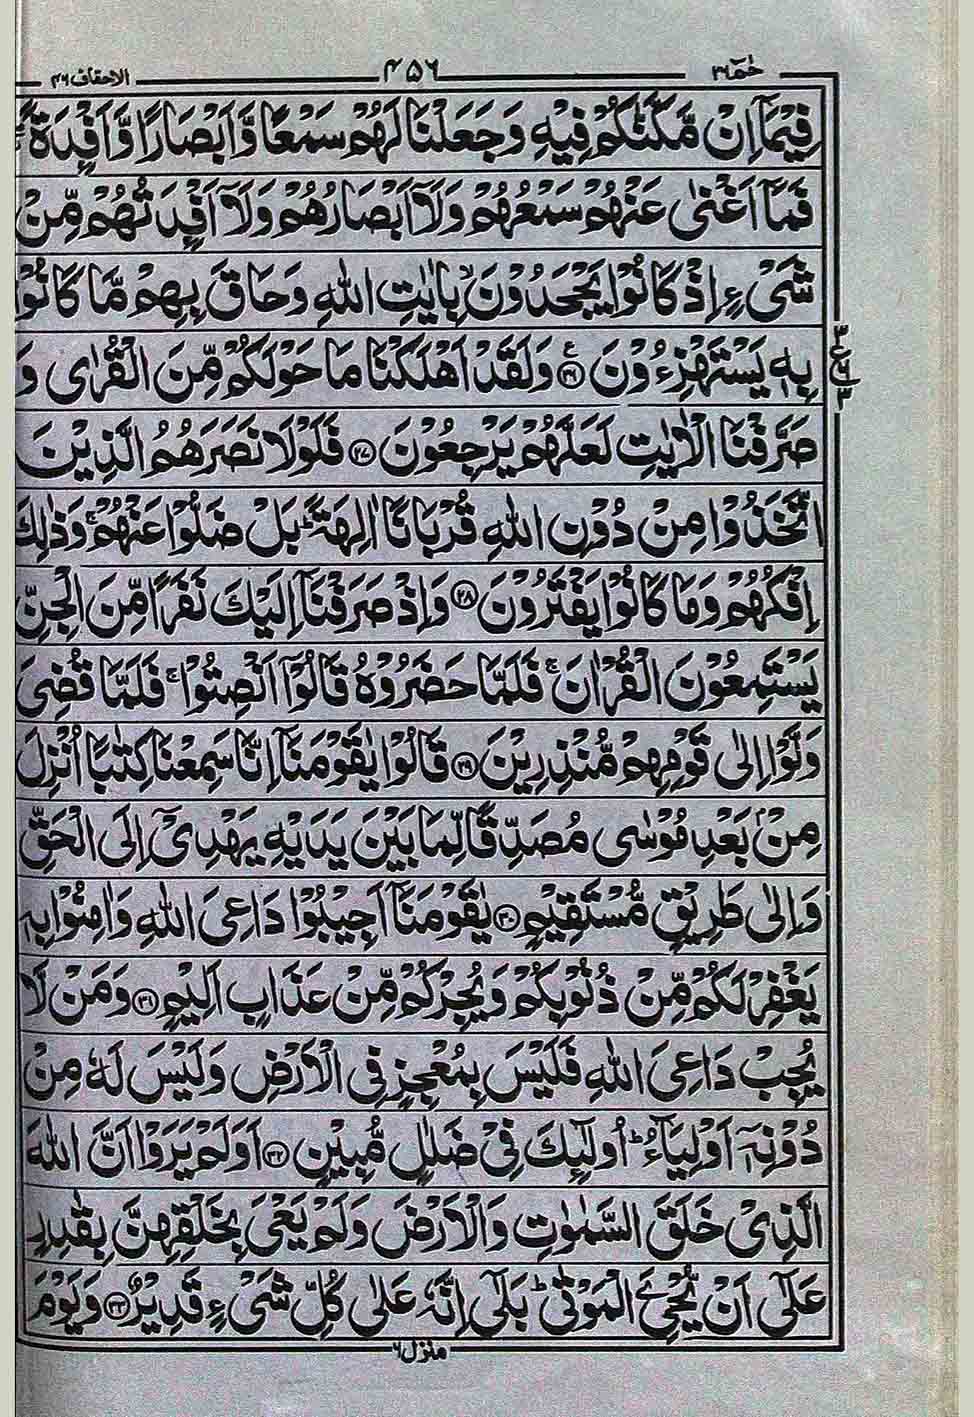 حٰمٓ ٢٦ ٤٥٦ الاحقاف ٤٦
فِيْمَاۤ اِنْ مَّكَّنّٰكُمْ فِيْهِ وَ جَعَلْنَا لَهُمْ سَمْعًا وَّ اَبْصَارًا وَّ اَفْـِٕدَةً ۖ
فَمَاۤ اَغْنٰى عَنْهُمْ سَمْعُهُمْ وَ لَاۤ اَبْصَارُهُمْ وَ لَاۤ اَفْـِٕدَتُهُمْ مِّنْ
شَیْءٍ اِذْ كَانُوْا یَجْحَدُوْنَ ۙ بِاٰیٰتِ اللّٰهِ وَ حَاقَ بِهِمْ مَّا كَانُوْا
بِهٖ یَسْتَهْزِءُوْنَ ﴿۲۶﴾ ع وَ لَقَدْ اَهْلَكْنَا مَا حَوْلَكُمْ مِّنَ الْقُرٰى وَ
صَرَّفْنَا الْاٰیٰتِ لَعَلَّهُمْ یَرْجِعُوْنَ ﴿۲۷﴾ فَلَوْ لَا نَصَرَهُمُ الَّذِیْنَ
اتَّخَذُوْا مِنْ دُوْنِ اللّٰهِ قُرْبَانًا اٰلِهَةً ؕ بَلْ ضَلُّوْا عَنْهُمْ ۚ وَ ذٰلِكَ
اِفْكُهُمْ وَ مَا كَانُوْا یَفْتَرُوْنَ ﴿۲۸﴾ وَ اِذْ صَرَفْنَاۤ اِلَیْكَ نَفَرًا مِّنَ الْجِنِّ
یَسْتَمِعُوْنَ الْقُرْاٰنَ ۚ فَلَمَّا حَضَرُوْهُ قَالُوْۤا اَنْصِتُوْا ۚ فَلَمَّا قُضِیَ
وَلَّوْا اِلٰى قَوْمِهِمْ مُّنْذِرِیْنَ ﴿۲۹﴾ قَالُوْا یٰقَوْمَنَاۤ اِنَّا سَمِعْنَا كِتٰبًا اُنْزِلَ
مِنْۢ بَعْدِ مُوْسٰى مُصَدِّقًا لِّمَا بَیْنَ یَدَیْهِ یَهْدِیْۤ اِلَى الْحَقِّ
وَ اِلٰى طَرِیْقٍ مُّسْتَقِیْمٍ ﴿۳۰﴾ یٰقَوْمَنَاۤ اَجِیْبُوْا دَاعِیَ اللّٰهِ وَ اٰمِنُوْا بِهٖ
یَغْفِرْ لَكُمْ مِّنْ ذُنُوْبِكُمْ وَ یُجِرْكُمْ مِّنْ عَذَابٍ اَلِیْمٍ ﴿۳۱﴾ وَ مَنْ لَّا
یُجِبْ دَاعِیَ اللّٰهِ فَلَیْسَ بِمُعْجِزٍ فِی الْاَرْضِ وَ لَیْسَ لَهٗ مِنْ
دُوْنِهٖۤ اَوْلِیَآءُ ؕ اُولٰٓىِٕكَ فِیْ ضَلٰلٍ مُّبِیْنٍ ﴿۳۲﴾ اَوَ لَمْ یَرَوْا اَنَّ اللّٰهَ
الَّذِیْ خَلَقَ السَّمٰوٰتِ وَ الْاَرْضَ وَ لَمْ یَعْیَ بِخَلْقِهِنَّ بِقٰدِرٍ
عَلٰۤى اَنْ یُّحْیِ َۧ الْمَوْتٰى ؕ بَلٰۤى اِنَّهٗ عَلٰى كُلِّ شَیْءٍ قَدِیْرٌ ﴿۳۳﴾ وَ یَوْمَ
منزل ٦